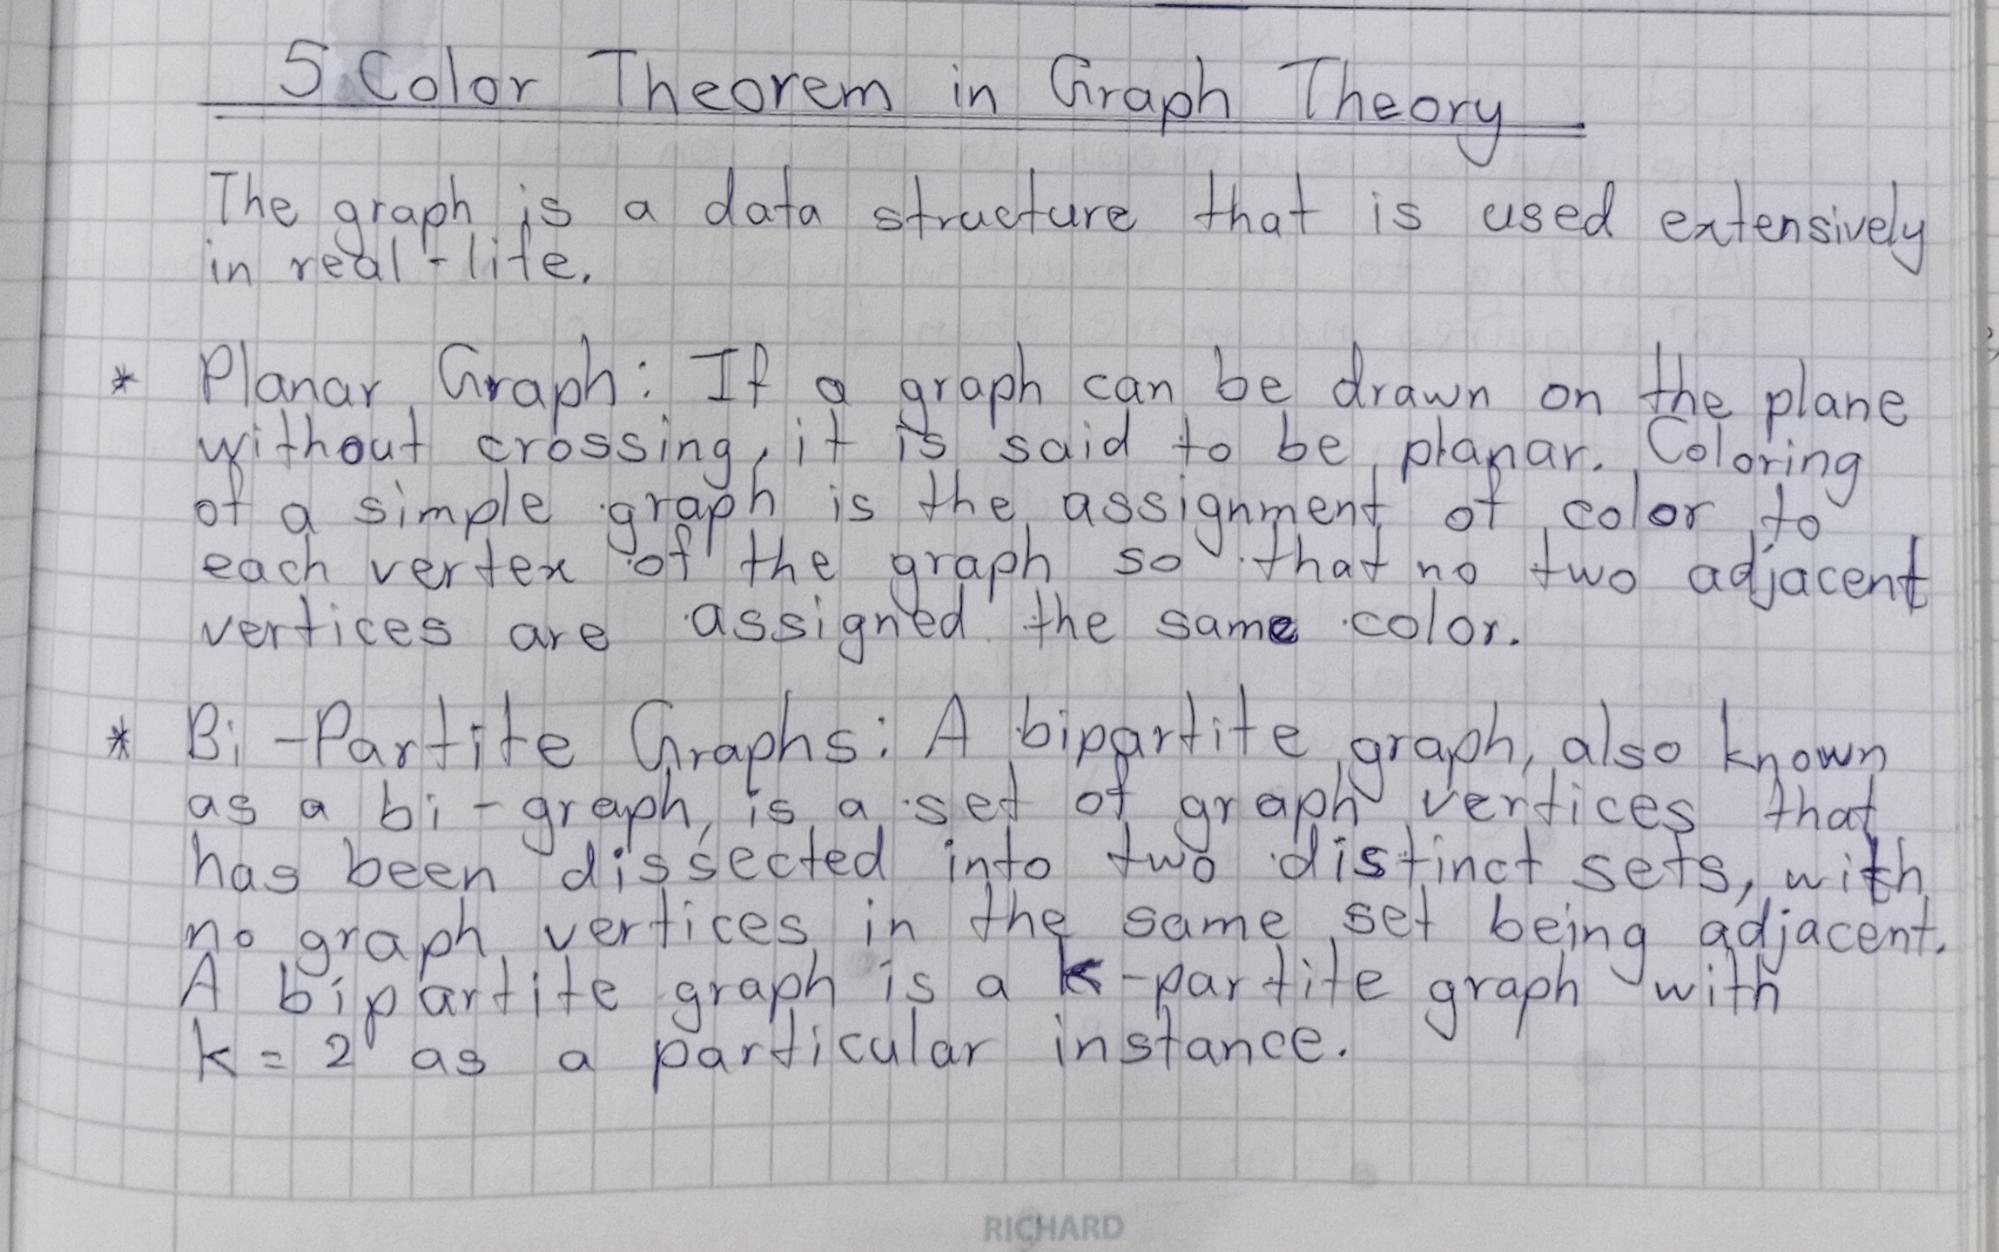 5 Color Theorem in Graph Theory
The graph is a data structure that is used extensively
in real-life.
* Planar Graph: If a graph can be drawn on the plane
without crossing, it is said to be planar. Coloring
of a simple graph is the assignment of color to
each vertex of the graph so that no two adjacent
vertices are assigned the same color.
* Bi-Partite Graphs: A bipartite graph, also known
as a bi-graph, is a set of graph vertices that
has been dissected into two distinct sets, with
no graph vertices in the same set being adjacent.
A bipartite graph is a k-partite graph with
k = 2 as a particular instance.
RICHARD